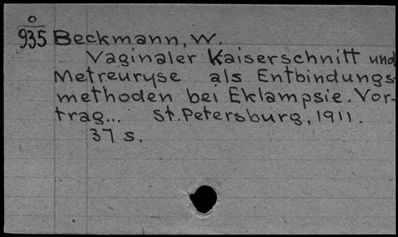 O
935 Beckmann, W.
Vaginaler Kaiserschnitt und
Metreuryse als Entbindungs-
methoden bei Eklampsie. Vor-
trag... St. Petersburg, 1911.
37 s.